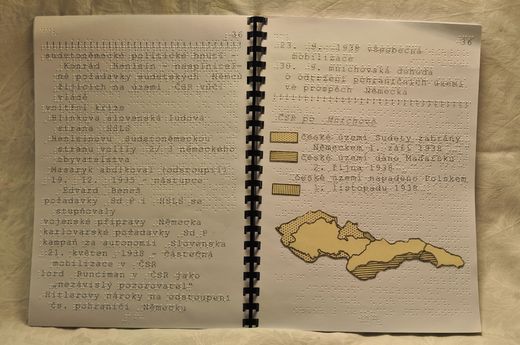 36
sudetoněmecké politické hnutí
Konrad Henlein - nesplnitel-
né požadavky sudetských Němců
žijících na území ČSR vůči
vládě
vnitřní krize
Hlinkova slovenská ludová
strana HSLS
Henleinovu Sudetoněmeckou
stranu volily 2/3 německého
obyvatelstva
Masaryk abdikoval (odstoupil)
19. 12. 1935 - nástupce
Edvard Beneš
požadavky Sd P i HSLS se
stupňovaly
vojenské přípravy Německa
karlovarské požadavky Sd P
kampaň za autonomii Slovenska
21. květen 1938 - částečná
mobilizace v ČSR
lord Runciman v ČSR jako
"nezávislý pozorovatel"
Hitlerovy nároky na odstoupení
čs. pohraničí Německu
36
23. 9. 1938 všeobecná
mobilizace
30. 9. mnichovská dohoda
o odtržení pohraničních území
ve prospěch Německa
ČSR po Mnichově
české území Sudety zabrány
Německem 1. září 1938
české území dáno Maďarsku
2. října 1938
české území napadeno Polskem
1. listopadu 1938